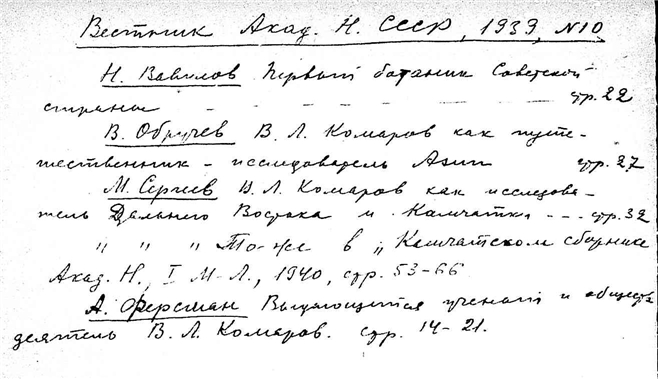 Вестник Акад. Н. СССР, 1939, №10
Н. Вавилов Первый ботаник Советской
страны - - - - - стр. 22
В. Обручев В. Л. Комаров как путе-
шественник - исследователь Азии стр. 27
М. Сергеев В. Л. Комаров как исследова-
тель Дальнего Востока и Камчатки --- стр. 32
" " " То-же в „Камчатском сборнике
Акад. Н., I М-Л., 1940, стр. 53-66
А. Ферсман Выдающийся ученый и обществ
деятель В. Л. Комаров. стр. 14-21.